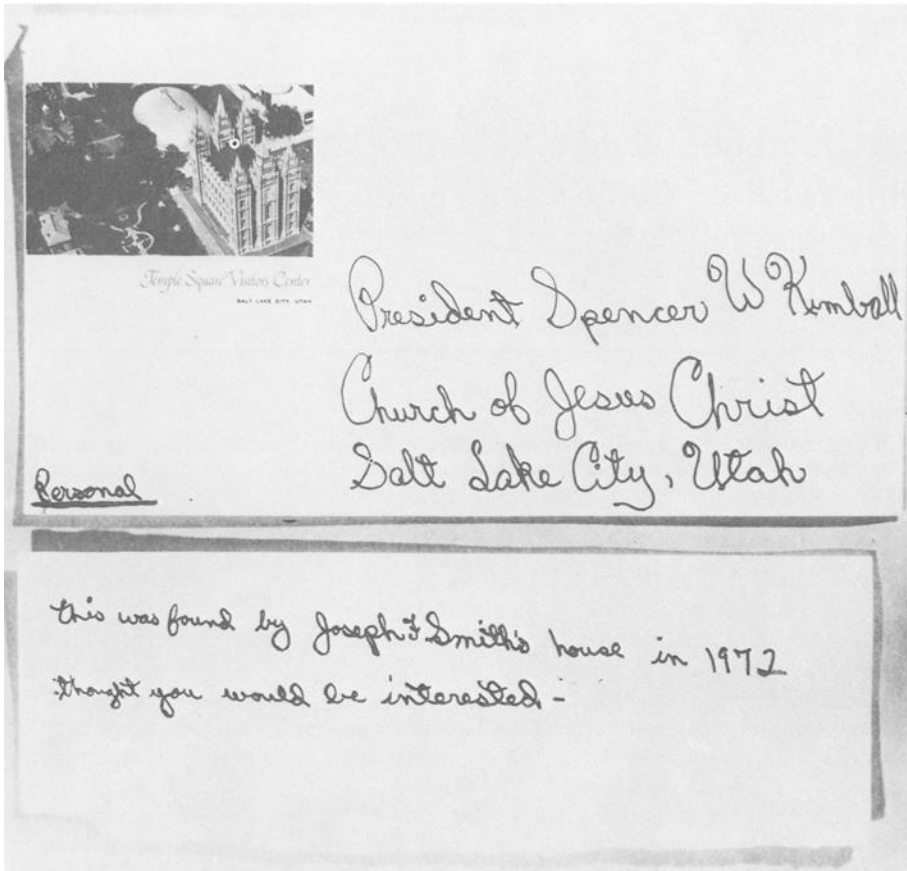 Temple Square Visitors Center
SALT LAKE CITY, UTAH
President Spencer W Kimball
Church of Jesus Christ
Salt Lake City, Utah
Personal
this was found by Joseph F Smith's house in 1972
thought you would be interested -